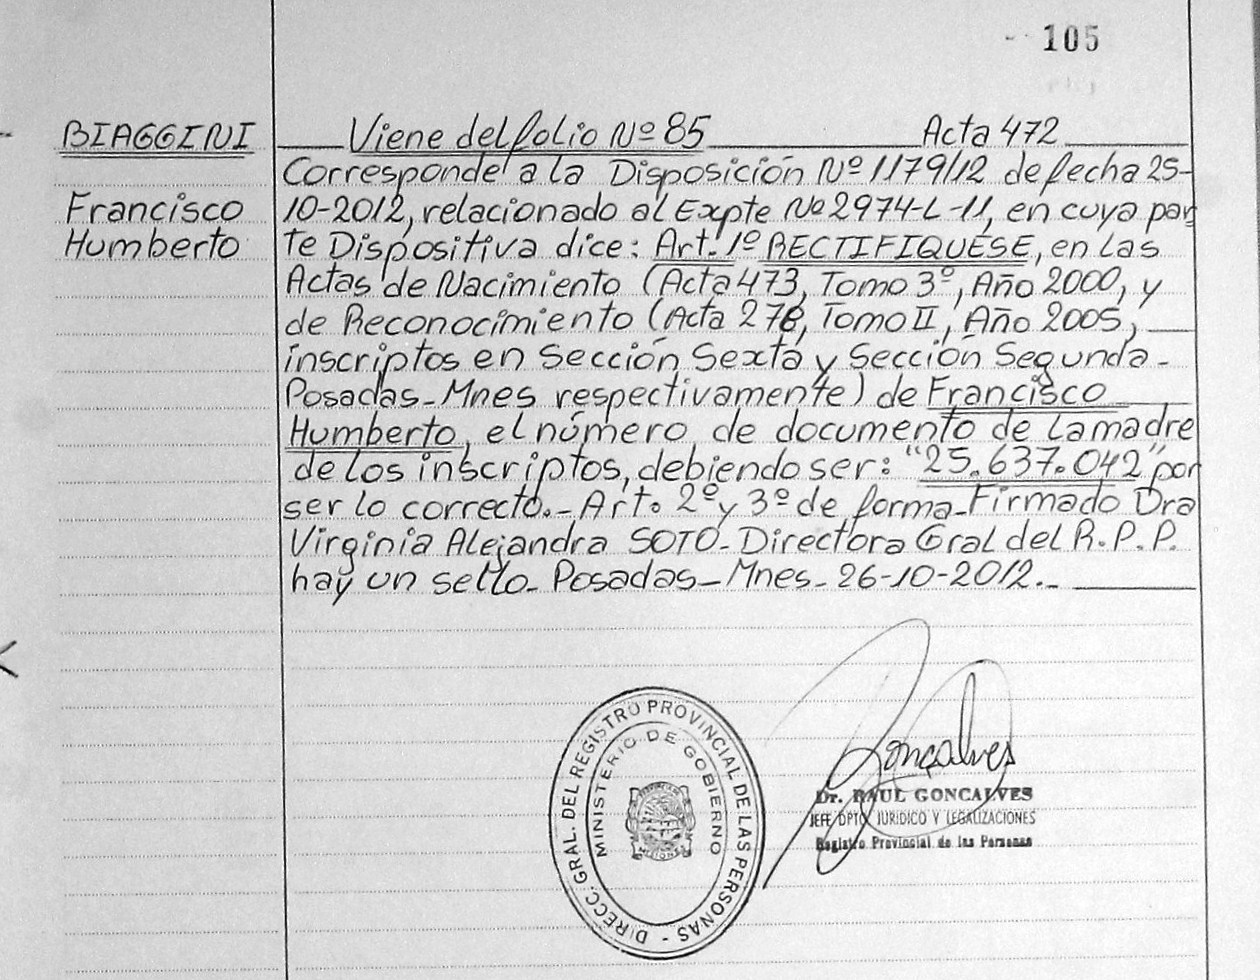 105
BIAGGINI
Francisco
Humberto
Viene del folio Nº 85 Acta 472
Corresponde a la Disposición Nº 1179/12 de fecha 25-
10-2012, relacionado al Expte Nº 2974-L-11, en cuya par
te Dispositiva dice: Art. 1º RECTIFIQUESE, en las
Actas de Nacimiento (Acta 473, Tomo 3º, Año 2000, y
de Reconocimiento (Acta 278, Tomo II, Año 2005,
inscriptos en Sección Sexta y Sección Segunda-
Posadas-Mnes respectivamente) de Francisco
Humberto, el número de documento de la madre
de los inscriptos, debiendo ser: "25.637.042" por
ser lo correcto.- Art. 2º y 3º de forma-Firmado Dra
Virginia Alejandra SOTO-Directora Gral del R.P.P.
hay un sello- Posadas-Mnes-26-10-2012.-
DIRECC. GRAL. DEL REGISTRO PROVINCIAL DE LAS PERSONAS -
MINISTERIO DE GOBIERNO
MISIONES
Goncalves
Dr. RAUL GONCALVES
JEFE DPTO JURIDICO Y LEGALIZACIONES
Registro Provincial de las Personas